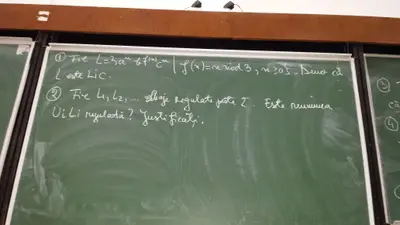 ① Fie L = { aⁿ b^f(n) cⁿ | f(x) = x mod 3, n ≥ 0 }. Dem că
L este LIC.
② Fie L₁, L₂, ... limbaje regulate peste Σ. Este reuniunea
∪i Li regulată? Justificați.
③
④